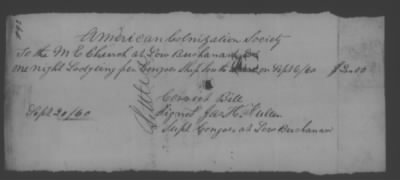 American Colonization Society
To the M E Church at Low Buchanan, Dr
one night Lodgeing per Congoes Ship South on Sept 6/60 $2.00
Correct Bill
Sept 20/60
Signed Jas H.
Supt Congoes at Low Buchanan